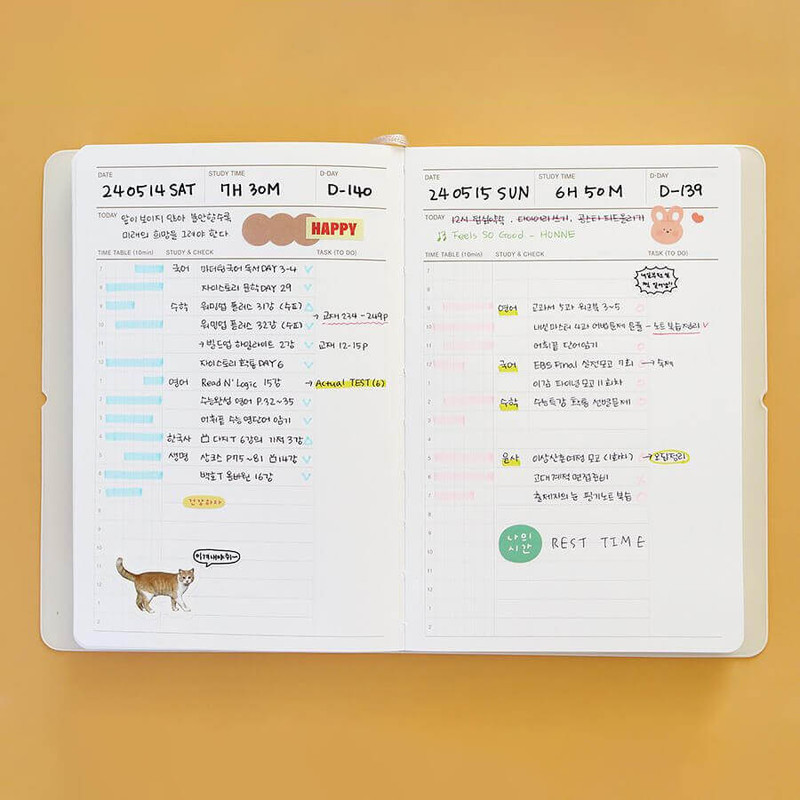 DATE
24 05 14 SAT
STUDY TIME
7H 30M
D-DAY
D-140
TODAY
앞이 보이지 않아 불안할수록
미래의 희망을 그려야 한다
HAPPY
TIME TABLE (10min)
STUDY & CHECK
TASK (TO DO)
국어 마더텅국어 독서 DAY 3-4
자이스토리 문학 DAY 29
수학 워밍업 플러스 31강 (수II)
→ 교재 234 - 249p
워밍업 플러스 32강 (수II)
→ 빌드업 하일라이트 2강 교재 12-15p
자이스토리 확통 DAY 6
영어 Read N' Logic 15강 → Actual TEST (6)
수능완성 영어 P.32~35
어휘끝 수능 영단어 암기
한국사 다지T 6강의 기적 3강
생명 상크스 P75~81 14강
백호T 올바원 16강
건강하자
이겨내야쥐~
DATE
24 05 15 SUN
STUDY TIME
6H 50M
D-DAY
D-139
TODAY
12시 점심약속 . 다이어리쓰기 . 공스타 피드올리기
Feels So Good - HONNE
TIME TABLE (10min)
STUDY & CHECK
TASK (TO DO)
영어 교과서 5과 워크북 3~5
내신마스터 4과 어법문제 몽풀 → 노트 복습정리
어휘끝 단어암기
국어 EBS Final 실전모고 7회 → 숙제
이감 파이널모고 11회차
수학 수능특강 확통 선별문제
윤사 이상산촌여정 모고 (1회차) → 오답정리
고대계적 면접준비
출제자의 눈 필기노트 복습
나의
시간
REST TIME